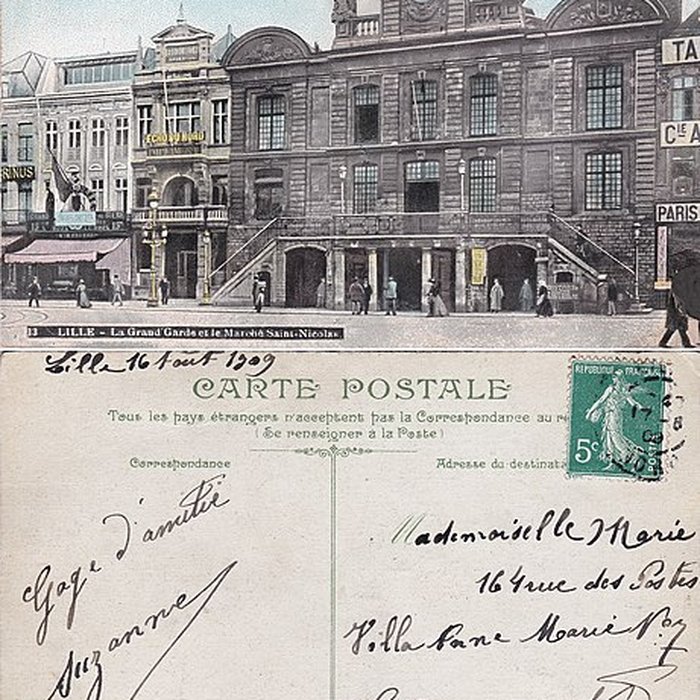 ECHO DU NORD
RINUS
TA
Cie A
PARIS
13 LILLE - La Grand'Garde et le Marché Saint-Nicolas
Lille 16 Août 1909
CARTE POSTALE
Tous les pays étrangers n'acceptent pas la Correspondance au re
(Se renseigner à la Poste)
Correspondance
Adresse du destinat
REPUBLIQUE FRANÇAISE
5c
POSTES
Gage d'amitié
Suzanne
Mademoiselle Marie
164 rue des Postes
Villa Anne Marie No 7